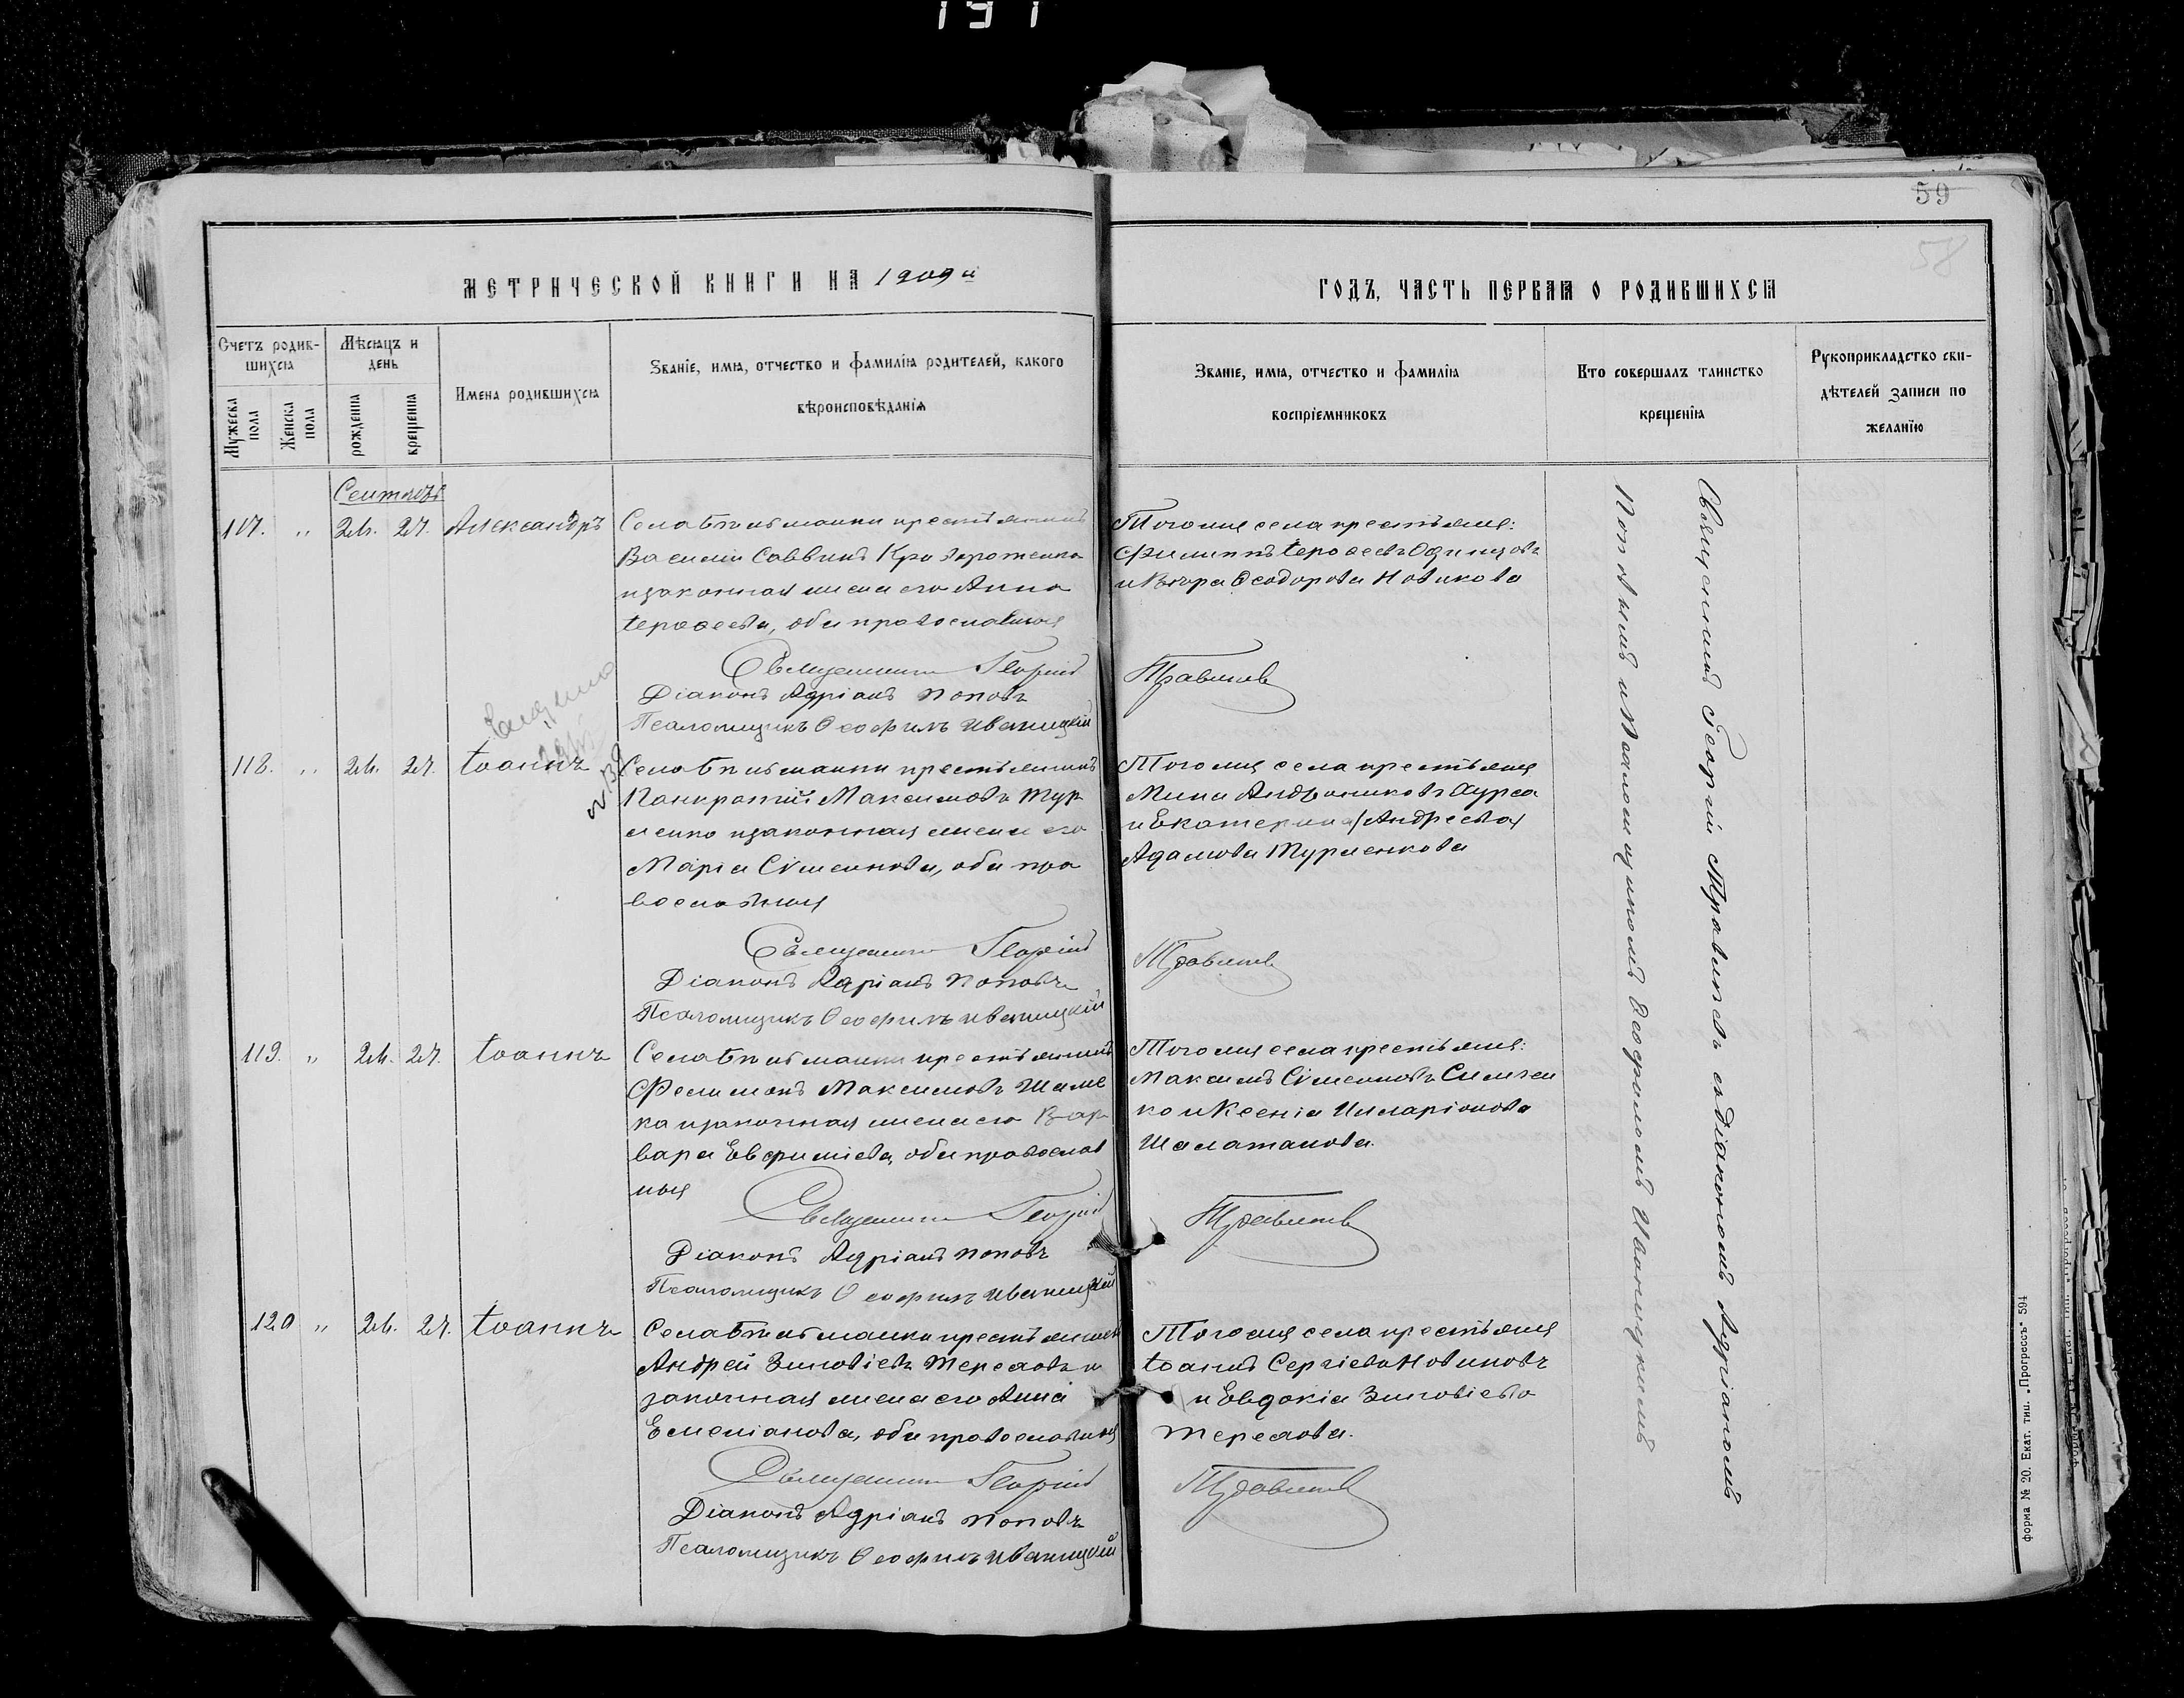 191
59
58
МЕТРИЧЕСКОЙ КНИГИ НА 1909й
ГОДЪ, ЧАСТЬ ПЕРВАЯ О РОДИВШИХСЯ
Счетъ родив-
шихся
Мужеска пола
Женска пола
Мѣсяцъ и
день
рожденія
крещенія
Имена родившихся
Званіе, имя, отчество и фамилія родителей, какого
вѣроисповѣданія
Званіе, имя, отчество и фамилія
воспріемниковъ
Кто совершалъ таинство
крещенія
Рукоприкладство сви-
дѣтелей записи по
желанію
Сентябрь
117. " 26. 27. Александръ
Села крестьянинъ
Василій Саввинъ
и законная жена его Анна
Іероѳеева, оба православныя
Священникъ Георгій
Діаконъ Адріанъ Поповъ
Псаломщикъ Ѳеофилъ Иваницкій
Того же села крестьяне:
Филиппъ Іероѳеевъ Одинцовъ
и Вѣра Ѳеодорова Новикова
Правиловъ
118. " 26. 27. Іоаннъ
Села крестьянинъ
Панкратій Максимовъ Тур
менко и законная жена его
Марія Сѵмеонова, оба пра
вославныя
Священникъ Георгій
Діаконъ Адріанъ Поповъ
Псаломщикъ Ѳеофилъ Иваницкій
Того же села крестьяне
Мина Андрониковъ
и Екатерина (Андреева)
Адамова Турменкова
119. " 26. 27. Іоаннъ
Села крестьянинъ
Филимонъ Максимовъ
ка и законная жена его Вар
вара Евфиміева, оба православ
ныя
Священникъ Георгій
Діаконъ Адріанъ Поповъ
Псаломщикъ Ѳеофилъ Иваницкій
Того же села крестьяне:
Максимъ Сѵмеоновъ Симчен
ко и Ксенія Илларіонова
Шалатанова.
120 " 26. 27. Іоаннъ
Села крестьянинъ
Андрей Зиновіевъ Тереховъ и
законная жена его Анна
Емеліанова, оба православныя
Священникъ Георгій
Діаконъ Адріанъ Поповъ
Псаломщикъ Ѳеофилъ Иваницкій
Того же села крестьяне
Іоаннъ Сергіевъ Новиковъ
и Евдокія Зиновіева
Терехова.
Священникъ Георгій съ діакономъ Адріаномъ
Поповымъ и псаломщикомъ Ѳеофиломъ Иваницкимъ
Форма № 20. Екат. тип. „Прогрессъ" 594